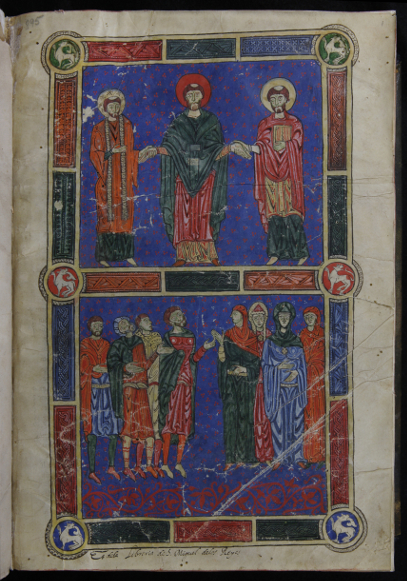 Es dela Libreria de S. Miguel delos Reyes